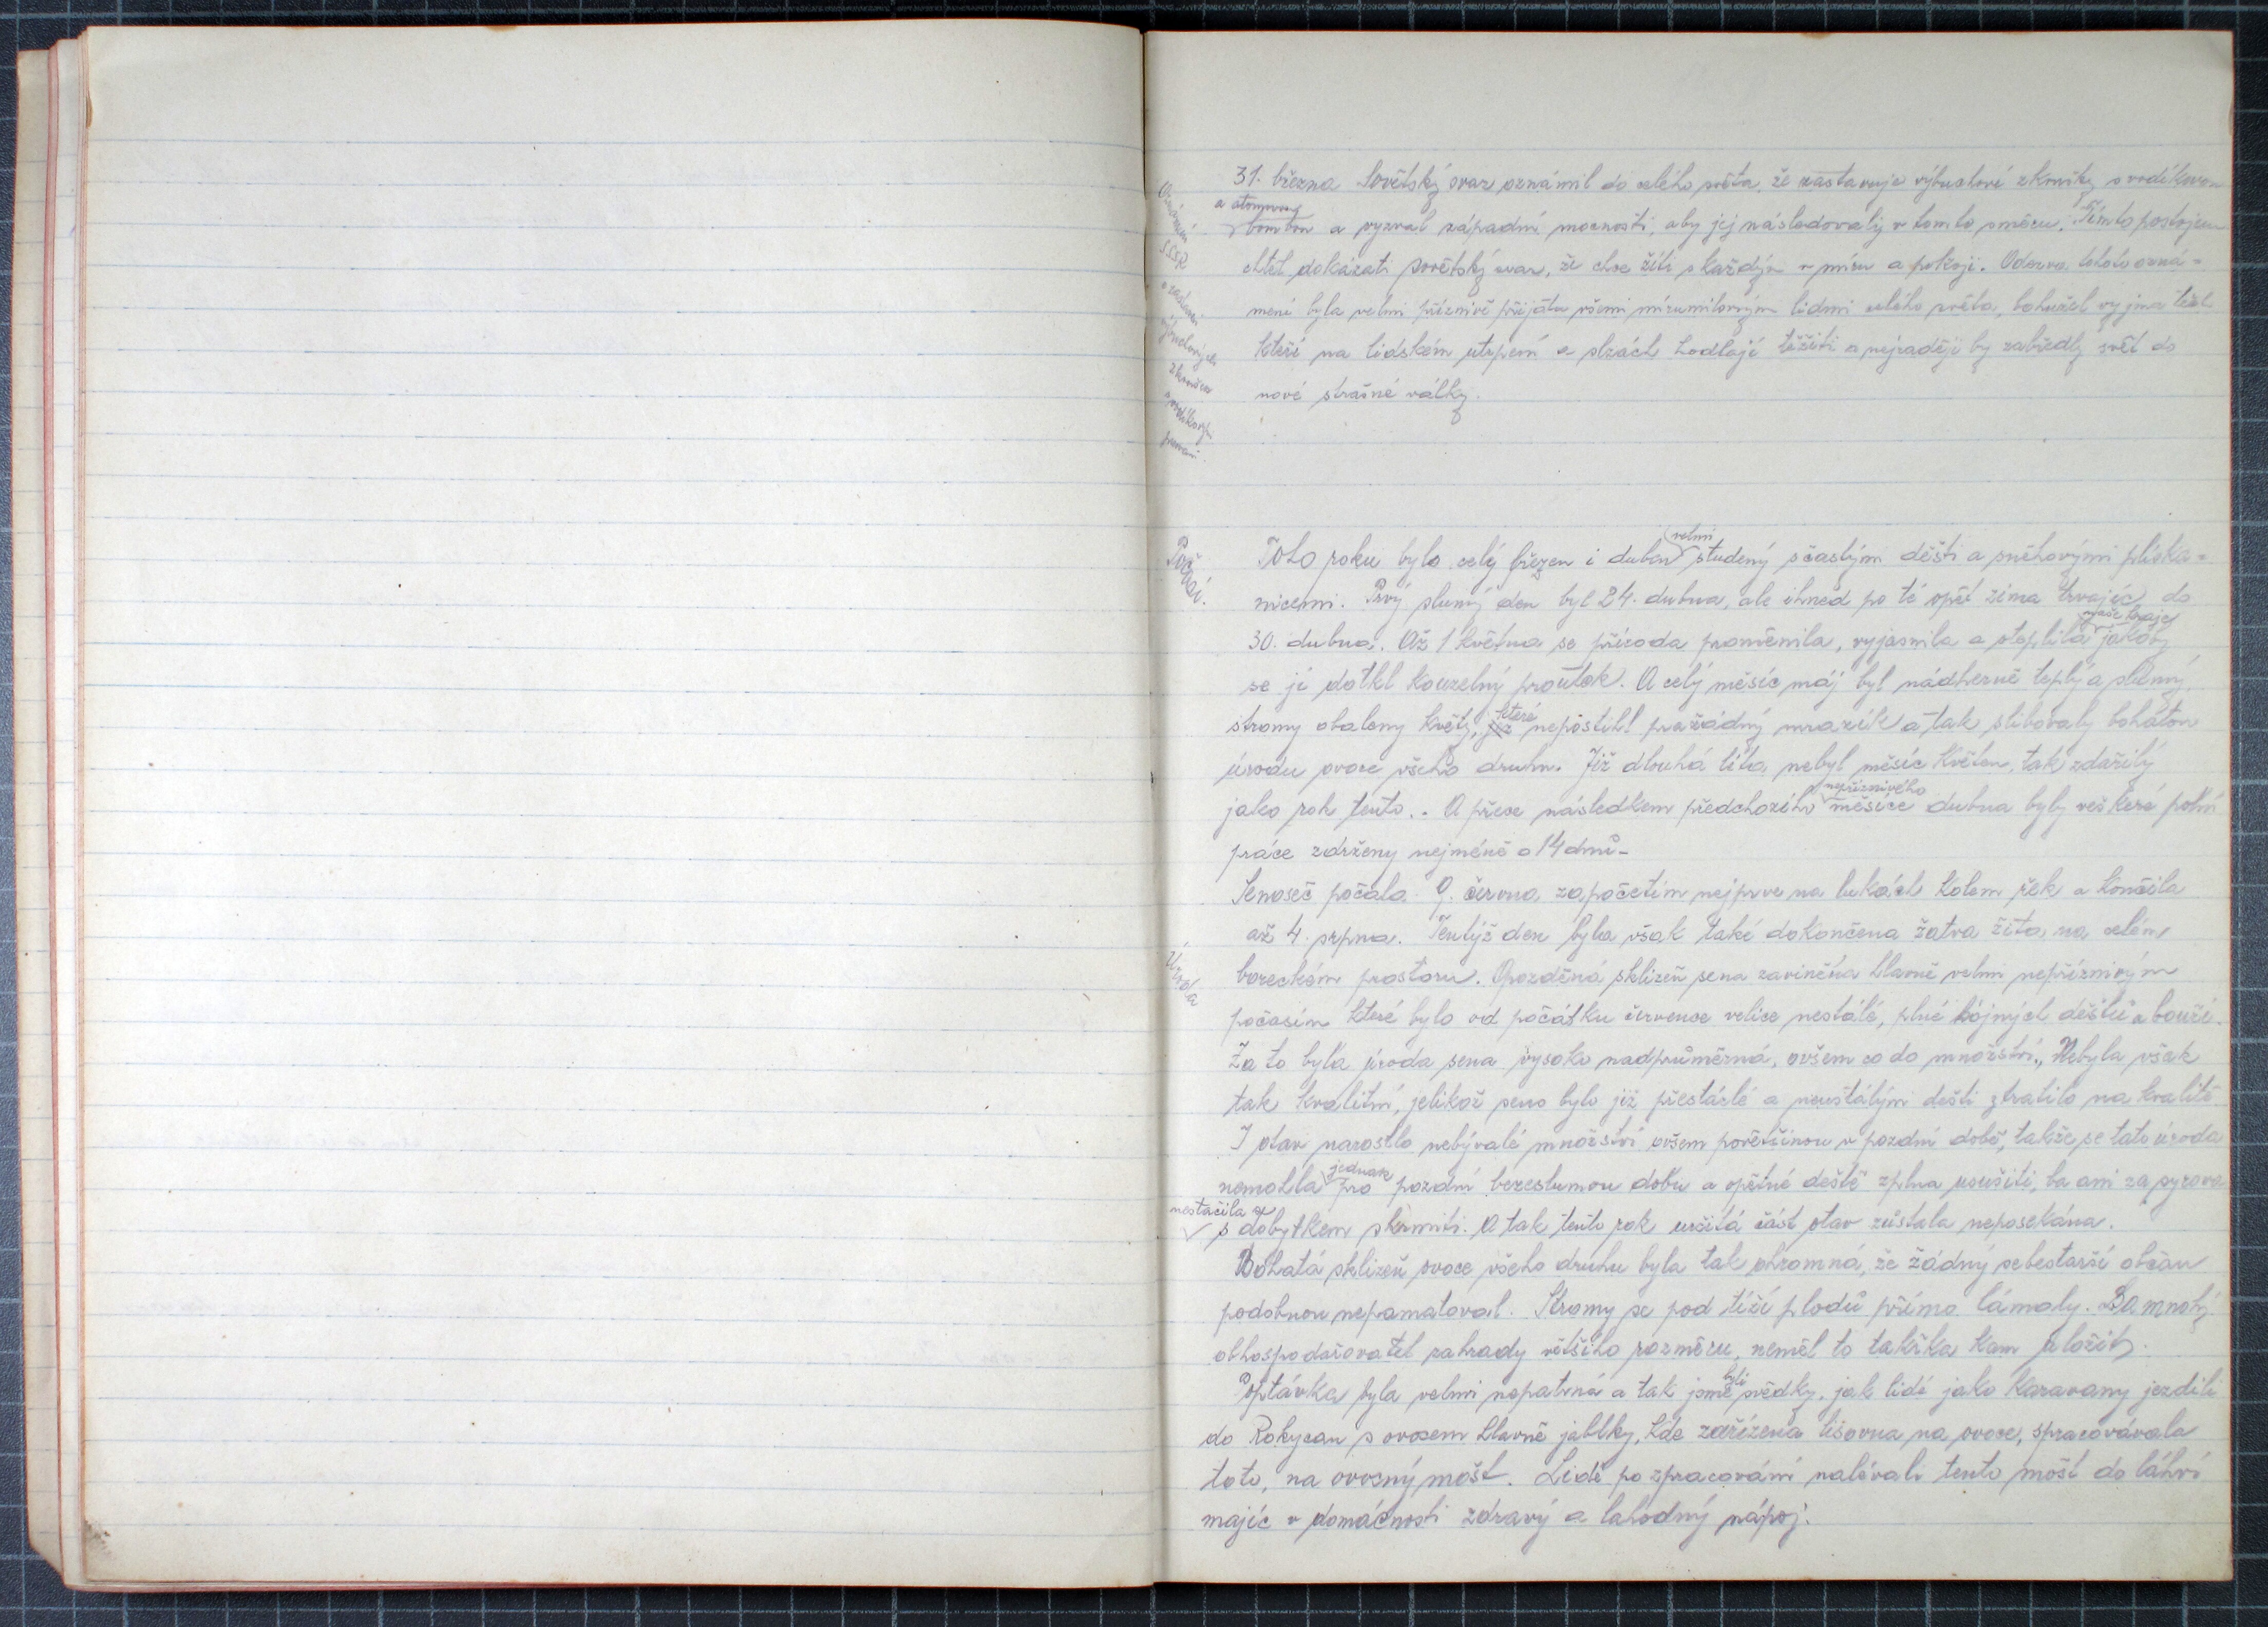 Oznámení
SSSR
o zastavení
výbuchových
zkoušek
s vodíkovými
pumami.
31. března Sovětský svaz oznámil do celého světa, že zastavuje výbuchové zkoušky s vodíkovou
a atomovou
bombou a vyzval západní mocnosti, aby jej následovaly v tomto směru. Tímto postojem
chtěl dokázati Sovětský svaz, že chce žíti s každým v míru a pokoji. Odezva tohoto ozná-
mení byla velmi příznivě přijata všemi mírumilovným lidmi celého světa, bohužel vyjma těch
kteří na lidském utrpení a slzách hodlají těžiti a nejraději by zavedly svět do
nové strašné války.
Počasí.
velmi
Toto roku bylo celý březen i duben studený s častým děšti a sněhovými plíska-
nicemi. Prvý slunný den byl 24. dubna, ale ihned po té opět zima trvajíc do
30. dubna. Až 1 května se příroda proměnila, vyjasnila a oteplila jakoby
se jí dotkl kouzelný proutek. A celý měsíc máj byl nádherně teplý a slunný,
stromy obaleny květy, které nepostihl pražádný mrazík a tak slibovaly bohatou
úrodu ovoce všeho druhu. Již dlouhá léta nebyl měsíc květen, tak zdařilý
nepříznivého
jako rok tento.. A přece následkem předchozího měsíce dubna byly veškeré polní
práce zdrženy nejméně o 14 dnů-
Senoseč počala 9. června, započetím nejprve na lukách kolem řek a končila
až 4. srpna. Tentýž den byla však také dokončena žatva žita, na celém
Úroda
boreckém prostoru. Opozděná sklizeň sena zaviněna hlavně velmi nepříznivým
počasím které bylo od počátku července velice nestálé, plné hojných dešťů a bouří.
Za to byla úroda sena vysoko nadprůměrná, ovšem co do množství,, Nebyla však
tak kvalitní, jelikož seno bylo již přestárlé a neustálým dešti ztratilo na kvalitě
I otav narostlo nebývalé množství ovšem povětšinou v pozdní době, takže se tato úroda
jednak
nemohla pro pozdní bezeslunnou dobu a opětné deště zplna usušiti, ba ani za syrova
nestačila se
s dobytkem zkrmiti. A tak tento rok určitá část otav zůstala neposekána.
Bohatá sklizeň ovoce všeho druhu byla tak ohromná, že žádný sebestarší občan
podobnou nepamatoval. Stromy se pod tíží plodů přímo lámaly. Ba mnohý
obhospodařovatel zahrady většího rozměru, neměl to takřka kam uložit.
byli
Poptávka byla velmi nepatrná a tak jsme svědky, jak lidé jako karavany jezdili
do Rokycan s ovocem hlavně jablky, kde zařízená lisovna na ovoce, spracovávala
toto, na ovocný mošt. Lidé po zpracování nalévali tento mošt do láhví
majíc v domácnosti zdravý a lahodný nápoj.